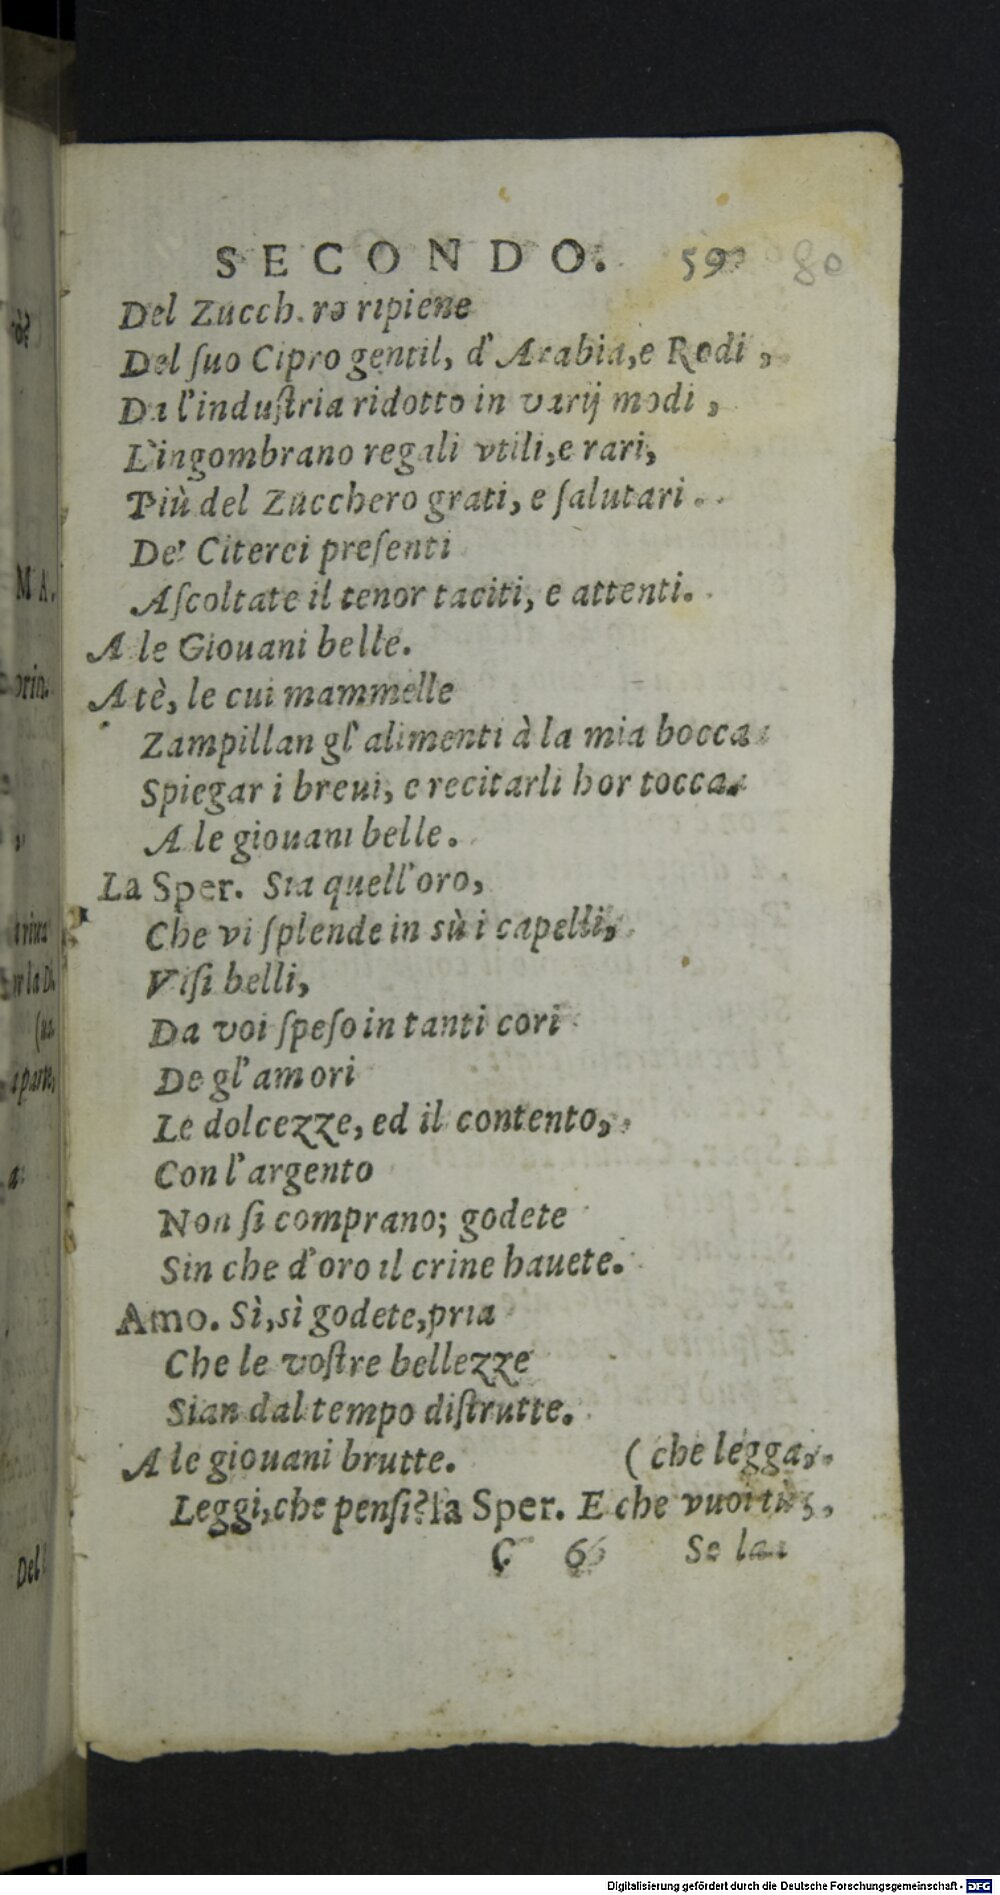 SECONDO. 59 80
Del Zucch.ro ripiene
Del ſuo Cipro gentil, d'Arabia,e Rodi,
Da l'induſtria ridotto in varij modi,
L'ingombrano regali vtili,e rari,
Più del Zucchero grati, e ſalutari.
De' Citerei preſenti
Aſcoltate il tenor taciti, e attenti.
A le Giouani belle.
A tè, le cui mammelle
Zampillan gl'alimenti à la mia bocca
Spiegar i breui, e recitarli hor tocca.
A le giouani belle.
La Sper. Sia quell'oro,
Che vi ſplende in sù i capelli,
Viſi belli,
Da voi ſpeſo in tanti cori
De gl'amori
Le dolcezze, ed il contento,
Con l'argento
Non ſi comprano; godete
Sin che d'oro il crine hauete.
Amo. Sì,sì godete,pria
Che le voſtre bellezze
Sian dal tempo diſtrutte.
A le giouani brutte. (che legga,
Leggi,che penſi?la Sper. E che vuoi tù,
C 6 Se la
M A.
Del
Digitalisierung gefördert durch die Deutsche Forschungsgemeinschaft - DFG